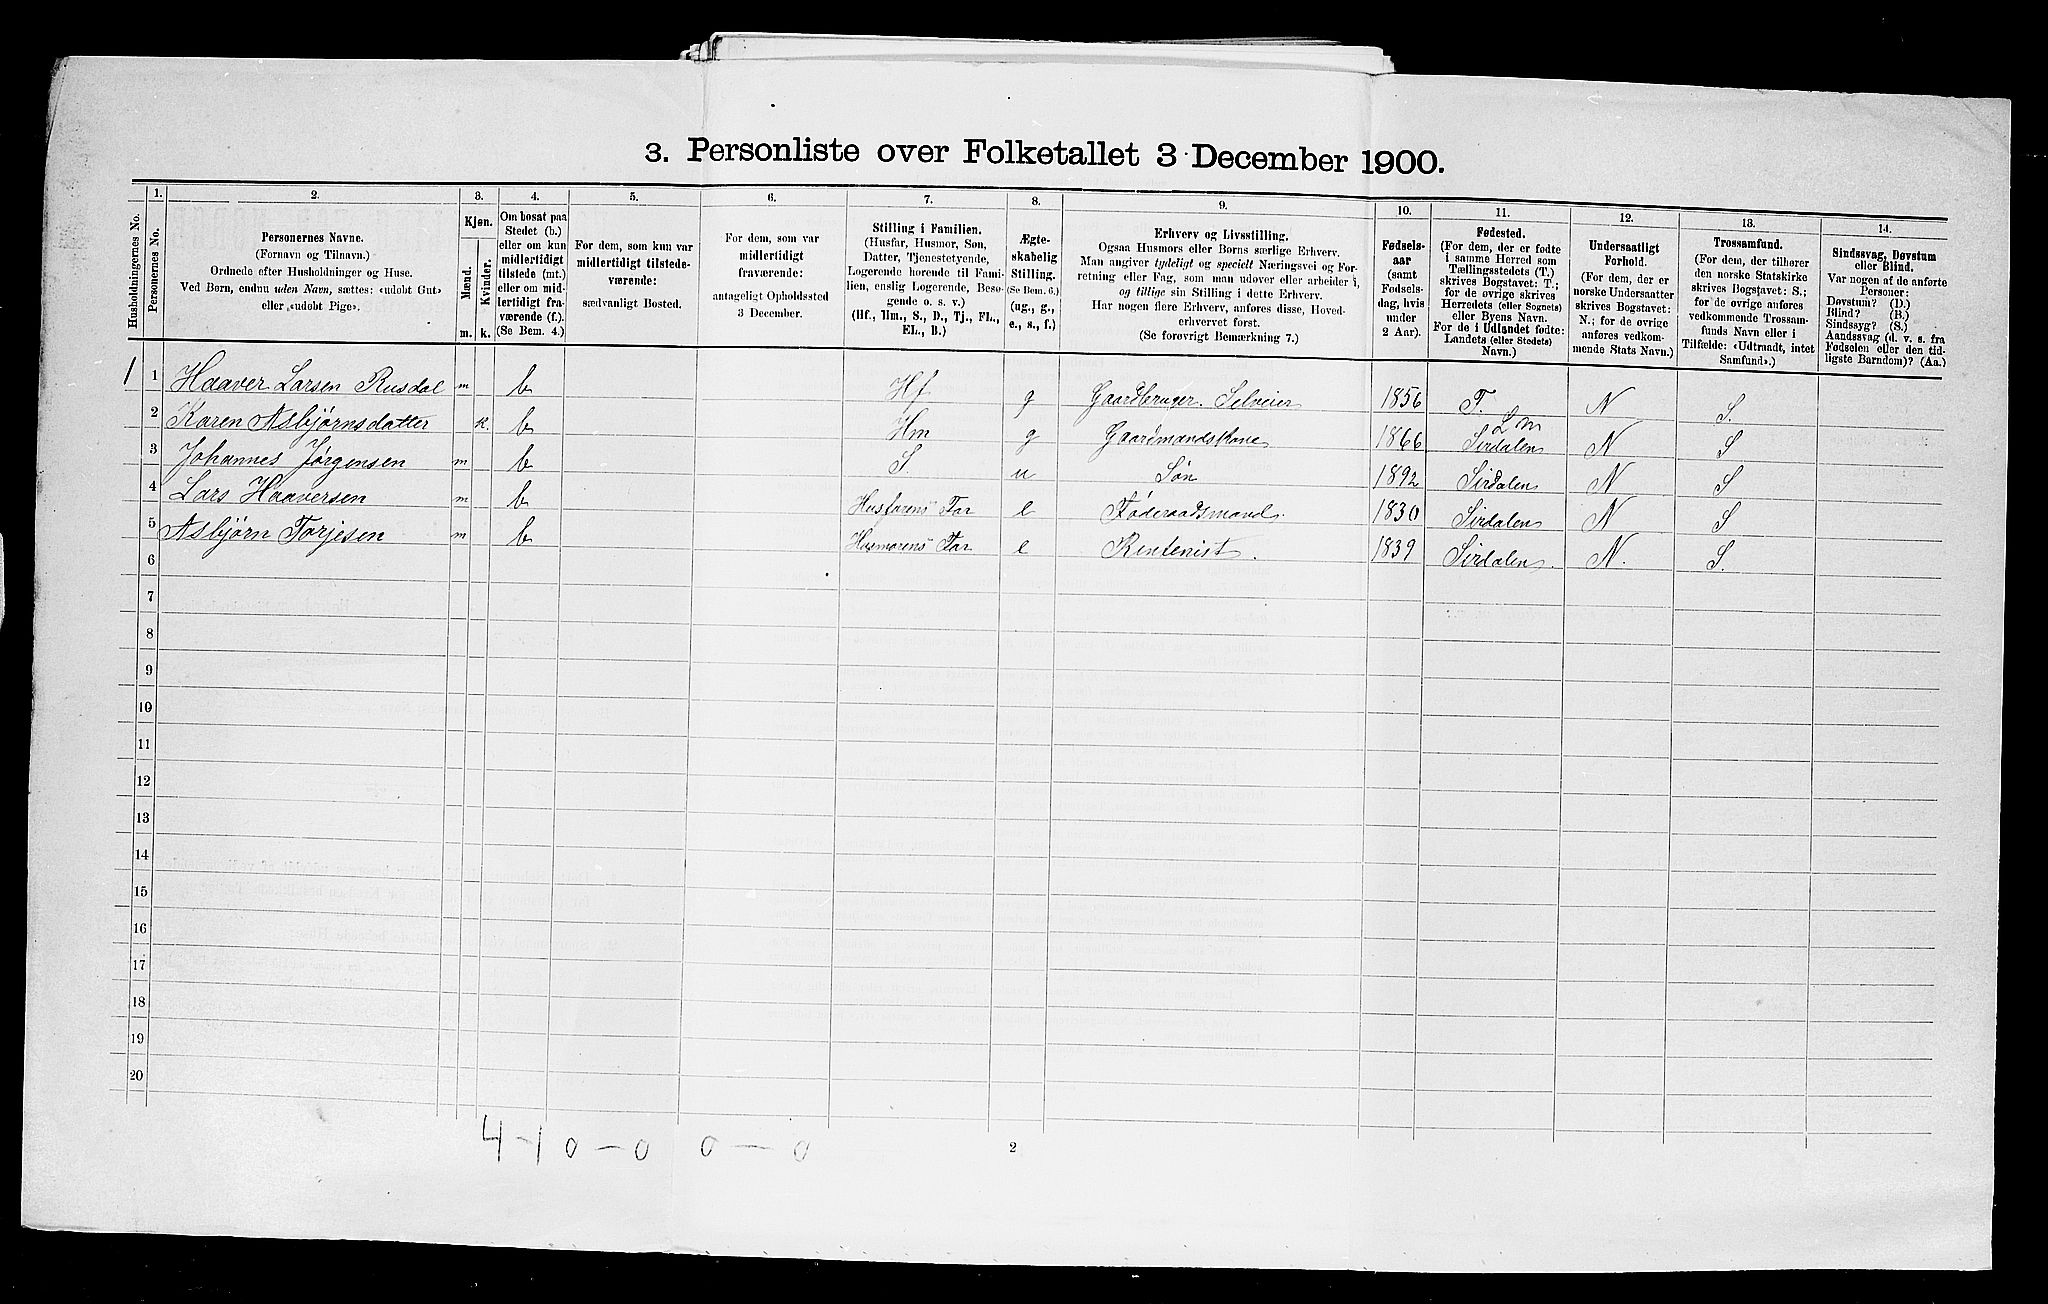 3. Personliste over Folketallet 3 December 1900.
Husholdningernes No.
1.
Personernes No.
2.
Personernes Navne.
(Fornavn og Tilnavn.)
Ordnede efter Husholdninger og Huse.
Ved Børn, endnu uden Navn, sættes: «udøbt Gut»
eller «udøbt Pige».
3.
Kjøn.
Mænd.
m.
Kvinder.
k.
4.
Om bosat paa
Stedet (b.)
eller om kun
midlertidigt
tilstede (mt.)
eller om mid-
lertidigt fra-
værende (f.).
(Se Bem. 4.)
5.
For dem, som kun var
midlertidigt tilstede-
værende:
sædvanligt Bosted.
6.
For dem, som var
midlertidigt
fraværende:
antageligt Opholdssted
3 December.
7.
Stilling i Familien.
(Husfar, Husmor, Søn,
Datter, Tjenestetyende,
Logerende hørende til Fami-
lien, enslig Logerende, Besø-
gende o. s. v.)
(Hf., Hm., S., D., Tj., FL.,
EL., B.)
8.
Ægte-
skabelig
Stilling.
(Se Bem. 6.)
(ug., g.,
e., s., f.)
9.
Erhverv og Livsstilling.
Ogsaa Husmors eller Børns særlige Erhverv.
Man angiver tydeligt og specielt Næringsvei og For-
retning eller Fag, som man udøver eller arbeider i,
og tillige sin Stilling i dette Erhverv.
Har nogen flere Erhverv, anføres disse, Hoved-
erhvervet først.
(Se forøvrigt Bemærkning 7.)
10.
Fødsels-
aar
(samt
Fødsels-
dag, hvis
under
2 Aar).
11.
Fødested.
(For dem, der er fødte
i samme Herred som
Tællingsstedets (T.)
skrives Bogstavet: T.;
for de øvrige skrives
Herredets (eller Sognets)
eller Byens Navn.
For de i Udlandet fødte:
Landets (eller Stedets)
Navn.)
12.
Undersaatligt
Forhold.
(For dem, der er
norske Undersaatter
skrives Bogstavet:
N.; for de øvrige
anføres vedkom-
mende Stats Navn.)
13.
Trossamfund.
(For dem, der tilhører
den norske Statskirke
skrives Bogstavet: S.;
for de øvrige anføres
vedkommende Trossam-
funds Navn eller i
Tilfælde: «Udtraadt, intet
Samfund».)
14.
Sindssvag, Døvstum
eller Blind.
Var nogen af de anførte
Personer:
Døvstum? (D.)
Blind? (B.)
Sindssyg? (S.)
Aandssvag (d. v. s. fra
Fødselen eller den tid-
ligste Barndom)? (Aa.)
1 1 Haaver Larsen Rusdal m b Hf g Gaardbruger. Selveier 1856 T. N S.
Lm
2 Karen Asbjørnsdatter k. b Hm g Gaardmandskone 1866 Sirdalen N S
3 Johannes Jørgensen m b S. u Søn 1892 Sirdalen N S
4 Lars Haaversen m b Husfarens Far e Føderaadsmand. 1830 Sirdalen N S
5 Asbjørn Torjesen m b Husmorens Far e Rentenist. 1839 Sirdalen. N. S.
6
7
8
9
10
11
12
13
14
15
16
17
18
19
20
4-10-0 0-0
2